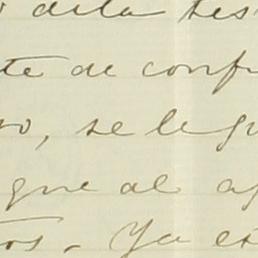 de la tes
te de conf
o, se le gu
que al ag
os. Ya es